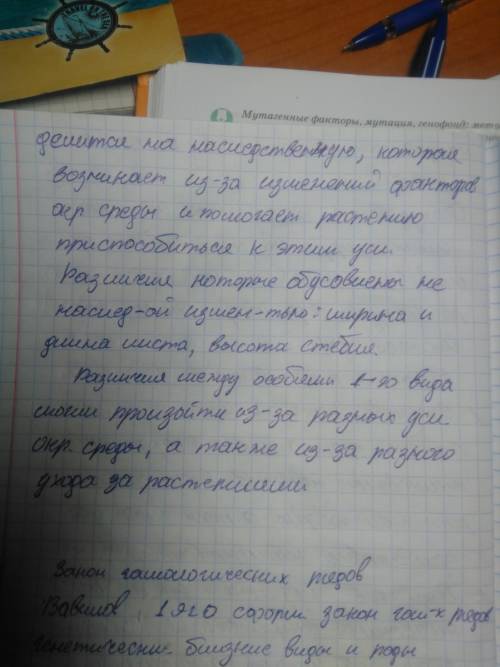 TRAVEL BY OCEAN
Мутагенные факторы, мутация, генофонд: мето
делится на наследственную, которая
возникает из-за изменений факторов
окр среды и помогает растению
приспособиться к этим усл.
Различия которые обусовлены не
наслед-ой измен-тью: ширина и
длина листа, высота стебля.
Различия между особями 1-го вида
могли произойти из-за разных усл
окр. среды, а также из-за разного
ухода за растениями
Закон гомологических рядов
Вавилов 1920 сформ. закон гом-х рядов
генетически близкие виды и роды